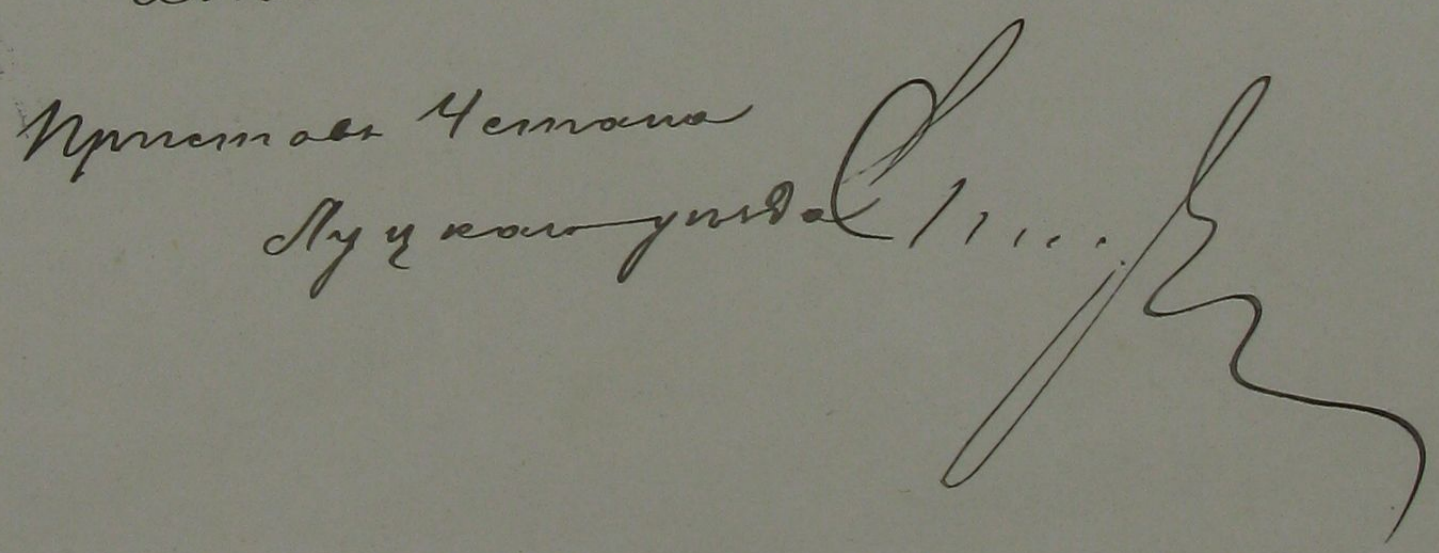 Приставъ 4 стана
Луцкаго уѣзда